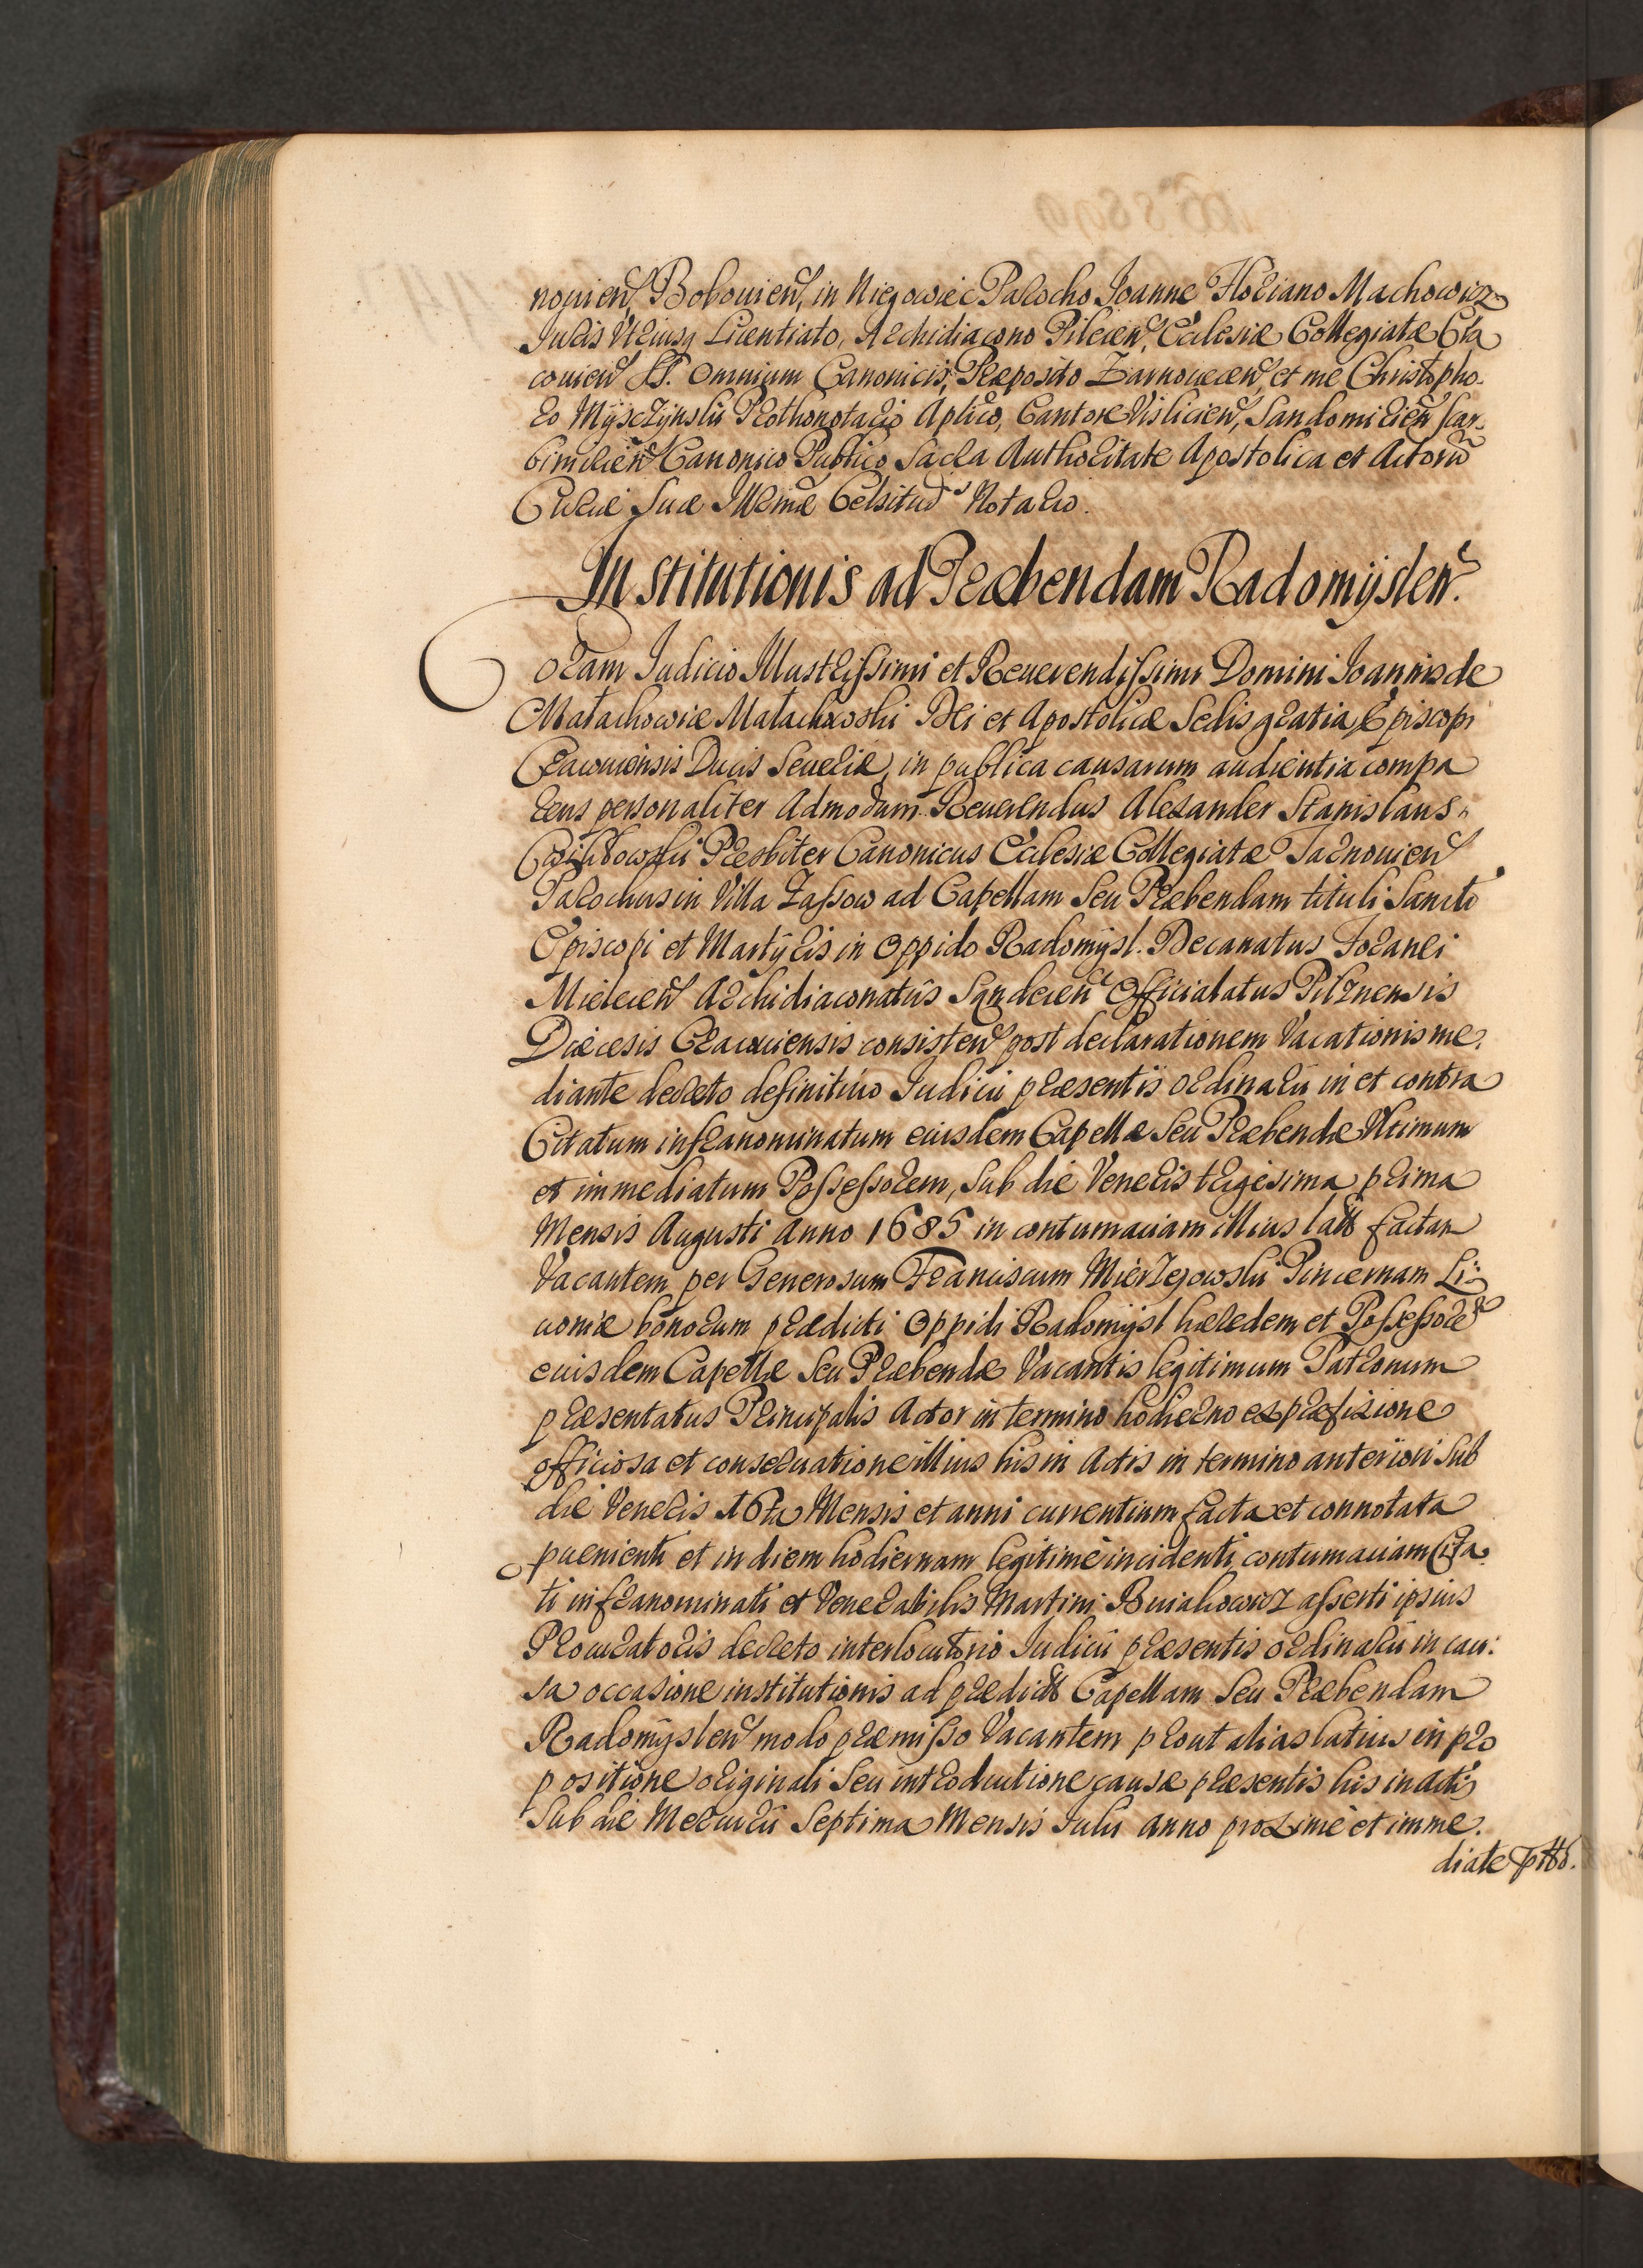 nouien, Bobouien, in Niegowiec Parocho Joanne Floriano Machowicz
Juris Vtriusq Licentiato, Archidiacono Pilcien, Ecclesiæ Collegiatæ Cra
couien SS. Omnium Canonicis, Præposito Zarnouecen, et me Christopho-
ro Mysczynski Prothonotario Aplico, Cantore Vislicien, Sandomirien Scar-
bimirien Canonico Publico Sacra Authoritate Apostolica et Actorũ
Curiæ Suæ Illrmæ Celsitud Notario.
Institutionis ad Præbendam Radomyslen.
Coram Judicio Illustrissimi et Reuerendissimi Domini Joannis de
Małachowice Małachowski Dei et Apostolicæ Sedis gratia Episcopi
Cracouiensis Ducis Seueriæ, in publica causarum audientia compa
rens personaliter Admodum Reuerendus Alexander Stanislaus
Presbiter Canonicus Ecclesiæ Collegiatæ Tarnouien
Parochus in Villa Zassow ad Capellam Seu Præbendam tituli Sancti
Episcopi et Martyris in Oppido Radomysl. Decanatus Foranei
Mielecen Archidiaconatus Sandecen Officialatus Pilznensis
Diæcesis Cracouiensis consisten post declarationem Vacationis me-
diante decreto definitiuo Judicii præsentis ordinarii in et contra
Citatum infranominatum eiusdem Capellæ Seu Præbendæ Vltimum
et immediatum Possessorem, Sub die Veneris trigesima prima
Mensis Augusti Anno 1685 in contumaciam illius latt factam
Vacantem per Generosum Franciscum Mierzegowski Pincernam Li-
uoniæ bonorum prædicti Oppidi Radomysl hæredem et Possessorẽ
eiusdem Capellæ Seu Præbendæ Vacantis legitimum Patronum
præsentatus Principalis Actor in termino hodierno ex præfixione
officiosa et conseruatione illius his in Actis in termino anteriori Sub
die Veneris 16ta Mensis et anni currentium facta et connotata
puenienti et in diem hodiernam legitime incidenti, contumaciam Cita-
ti infranominati et Venerabilis Martini Buiakowicz asserti ipsius
Procuratoris decreto interlocutorio Judicii præsentis ordinarii in cau-
sa occasione institutionis ad prædictt Capellam Seu Præbendam
Radomyslen modo præmisso Vacantem prout alias latius in pro
positione originali Seu introductione causæ præsentis his in Actis
Sub die Mercurii Septima Mensis Julii anno proxime et imme-
diate